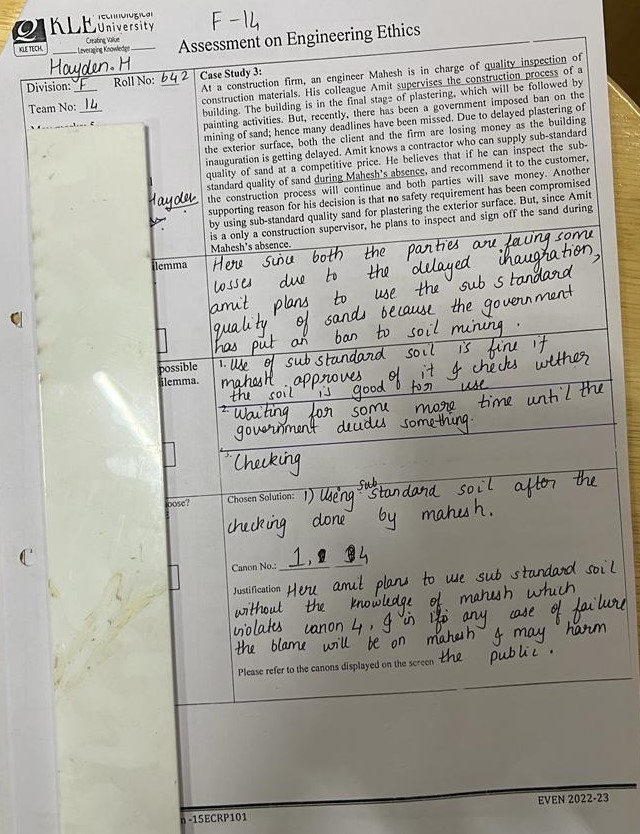 F-14
KLE Technological
University
Creating Value
Leveraging Knowledge
KLE TECH.
Assessment on Engineering Ethics
Hayden.H
Division: F Roll No: 642
Team No: 14
Hayden
Case Study 3:
At a construction firm, an engineer Mahesh is in charge of quality inspection of
construction materials. His colleague Amit supervises the construction process of a
building. The building is in the final stage of plastering, which will be followed by
painting activities. But, recently, there has been a government imposed ban on the
mining of sand; hence many deadlines have been missed. Due to delayed plastering of
the exterior surface, both the client and the firm are losing money as the building
inauguration is getting delayed. Amit knows a contractor who can supply sub-standard
quality of sand at a competitive price. He believes that if he can inspect the sub-
standard quality of sand during Mahesh's absence, and recommend it to the customer,
the construction process will continue and both parties will save money. Another
supporting reason for his decision is that no safety requirement has been compromised
by using sub-standard quality sand for plastering the exterior surface. But, since Amit
is a only a construction supervisor, he plans to inspect and sign off the sand during
Mahesh's absence.
ilemma
Here since both the parties are facing some
losses due to the delayed inaugration,
amit plans to use the sub standard
quality of sands because the government
has put an ban to soil mining.
possible
ilemma.
1. Use of sub standard soil is fine if
mahesh approves of it & checks wether
the soil is good for use
2. Waiting for some more time until the
government decides something.
3. Checking
oose?
Chosen Solution: 1) Using sub standard soil after the
checking done by mahesh.
Canon No.: 1, 4
Justification Here amit plans to use sub standard soil
without the knowledge of mahesh which
violates canon 4, & in any case of failure
the blame will be on mahesh & may harm
the public.
Please refer to the canons displayed on the screen
-15ECRP101
EVEN 2022-23